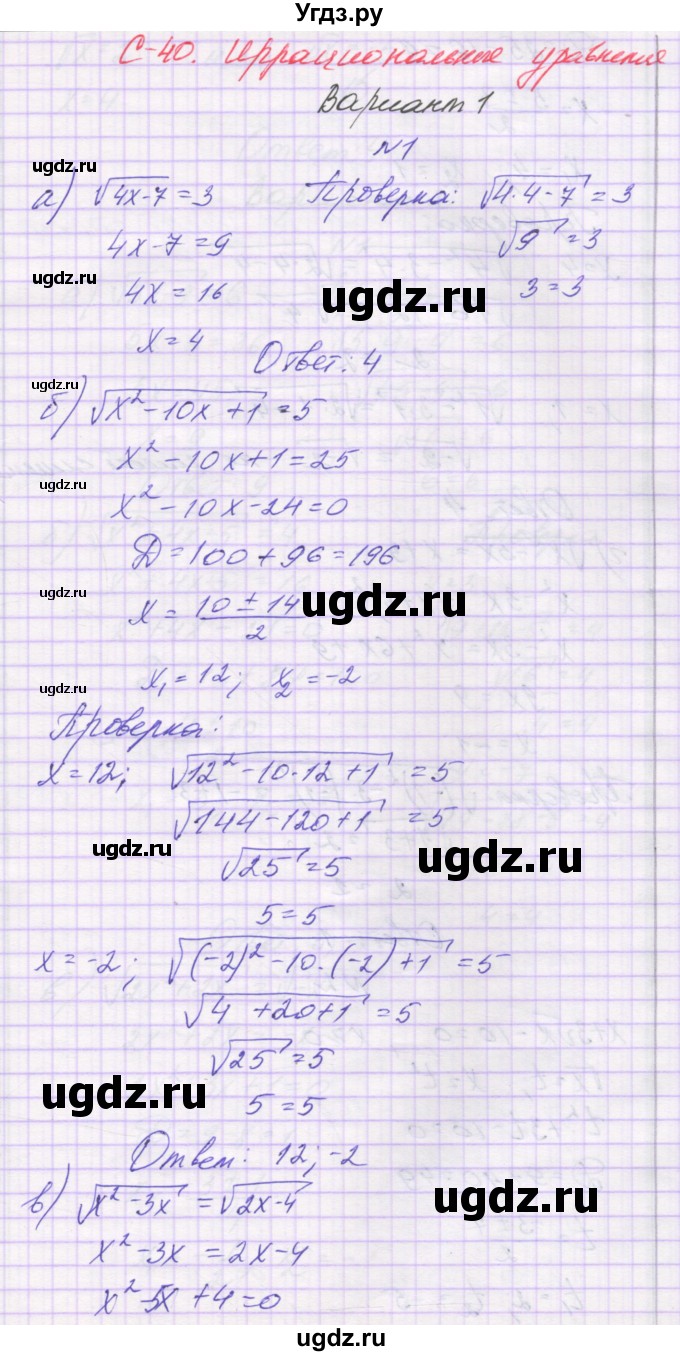 Угдз.ру
С-40. Иррациональные уравнения
Вариант 1
№1
ugdz.ru
а) √(4x-7) = 3 Проверка: √(4·4-7) = 3
4x-7=9 √9 = 3
ugdz.ru
4x = 16 ugdz.ru 3 = 3
x = 4
Ответ: 4
ugdz.ru
б) √(x²-10x+1) = 5
x²-10x+1=25
ugdz.ru
x²-10x-24=0
D=100+96=196
x = (10 ± 14)/2 ugdz.ru
ugdz.ru
x₁=12; x₂=-2
Проверка:
x=12; √(12²-10·12+1) = 5
√(144-120+1) = 5
ugdz.ru ugdz.ru
√25 = 5
5=5
x=-2; √((-2)²-10·(-2)+1) = 5
√(4+20+1) = 5
√25 = 5
ugdz.ru
5=5
Ответ: 12; -2
в) √(x²-3x) = √(2x-4) ugdz.ru
x²-3x = 2x-4
x²-5x+4=0
ugdz.ru